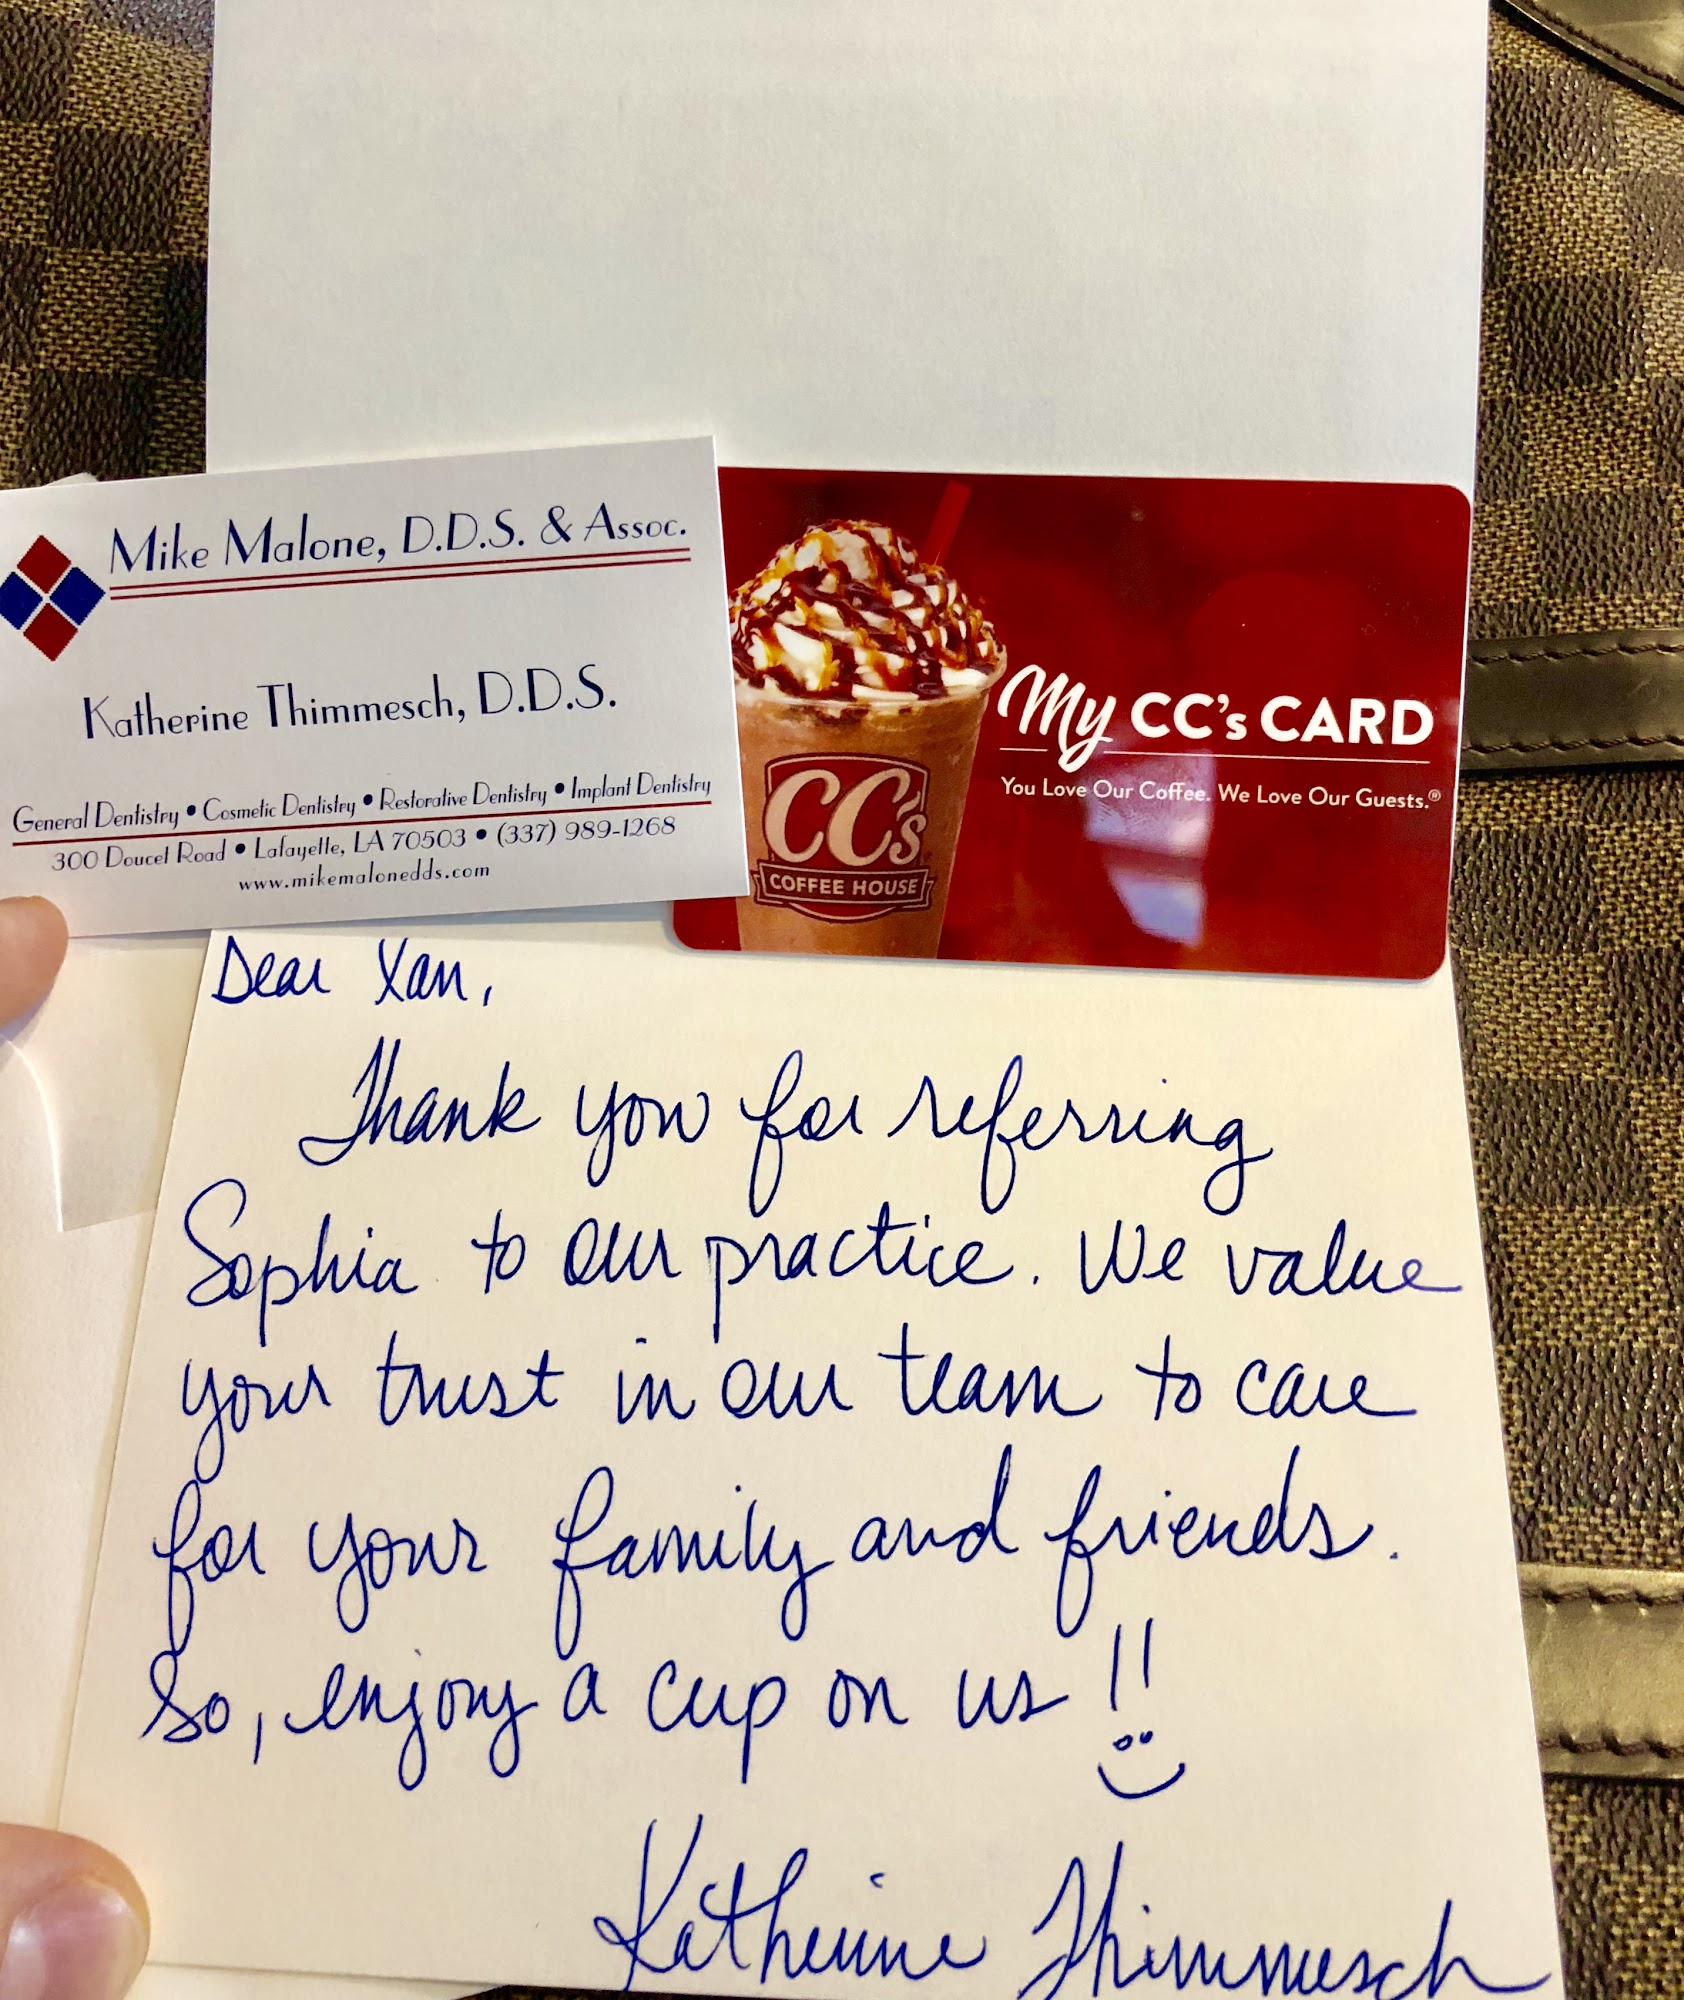 Mike Malone, D.D.S. & Assoc.
Katherine Thimmesch, D.D.S.
General Dentistry • Cosmetic Dentistry • Restorative Dentistry • Implant Dentistry
300 Doucet Road • Lafayette, LA 70503 • (337) 989-1268
www.mikemalonedds.com
My CC's CARD
You Love Our Coffee. We Love Our Guests.®
CC's
COFFEE HOUSE
Dear Xan,
Thank you for referring
Sophia to our practice. We value
your trust in our team to care
for your family and friends.
So, enjoy a cup on us!!
Katherine Thimmesch